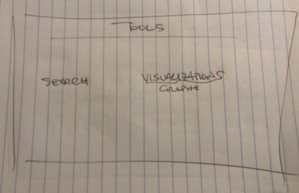 TOOLS
SEARCH
VISUALIZATIONS
GRAPHS